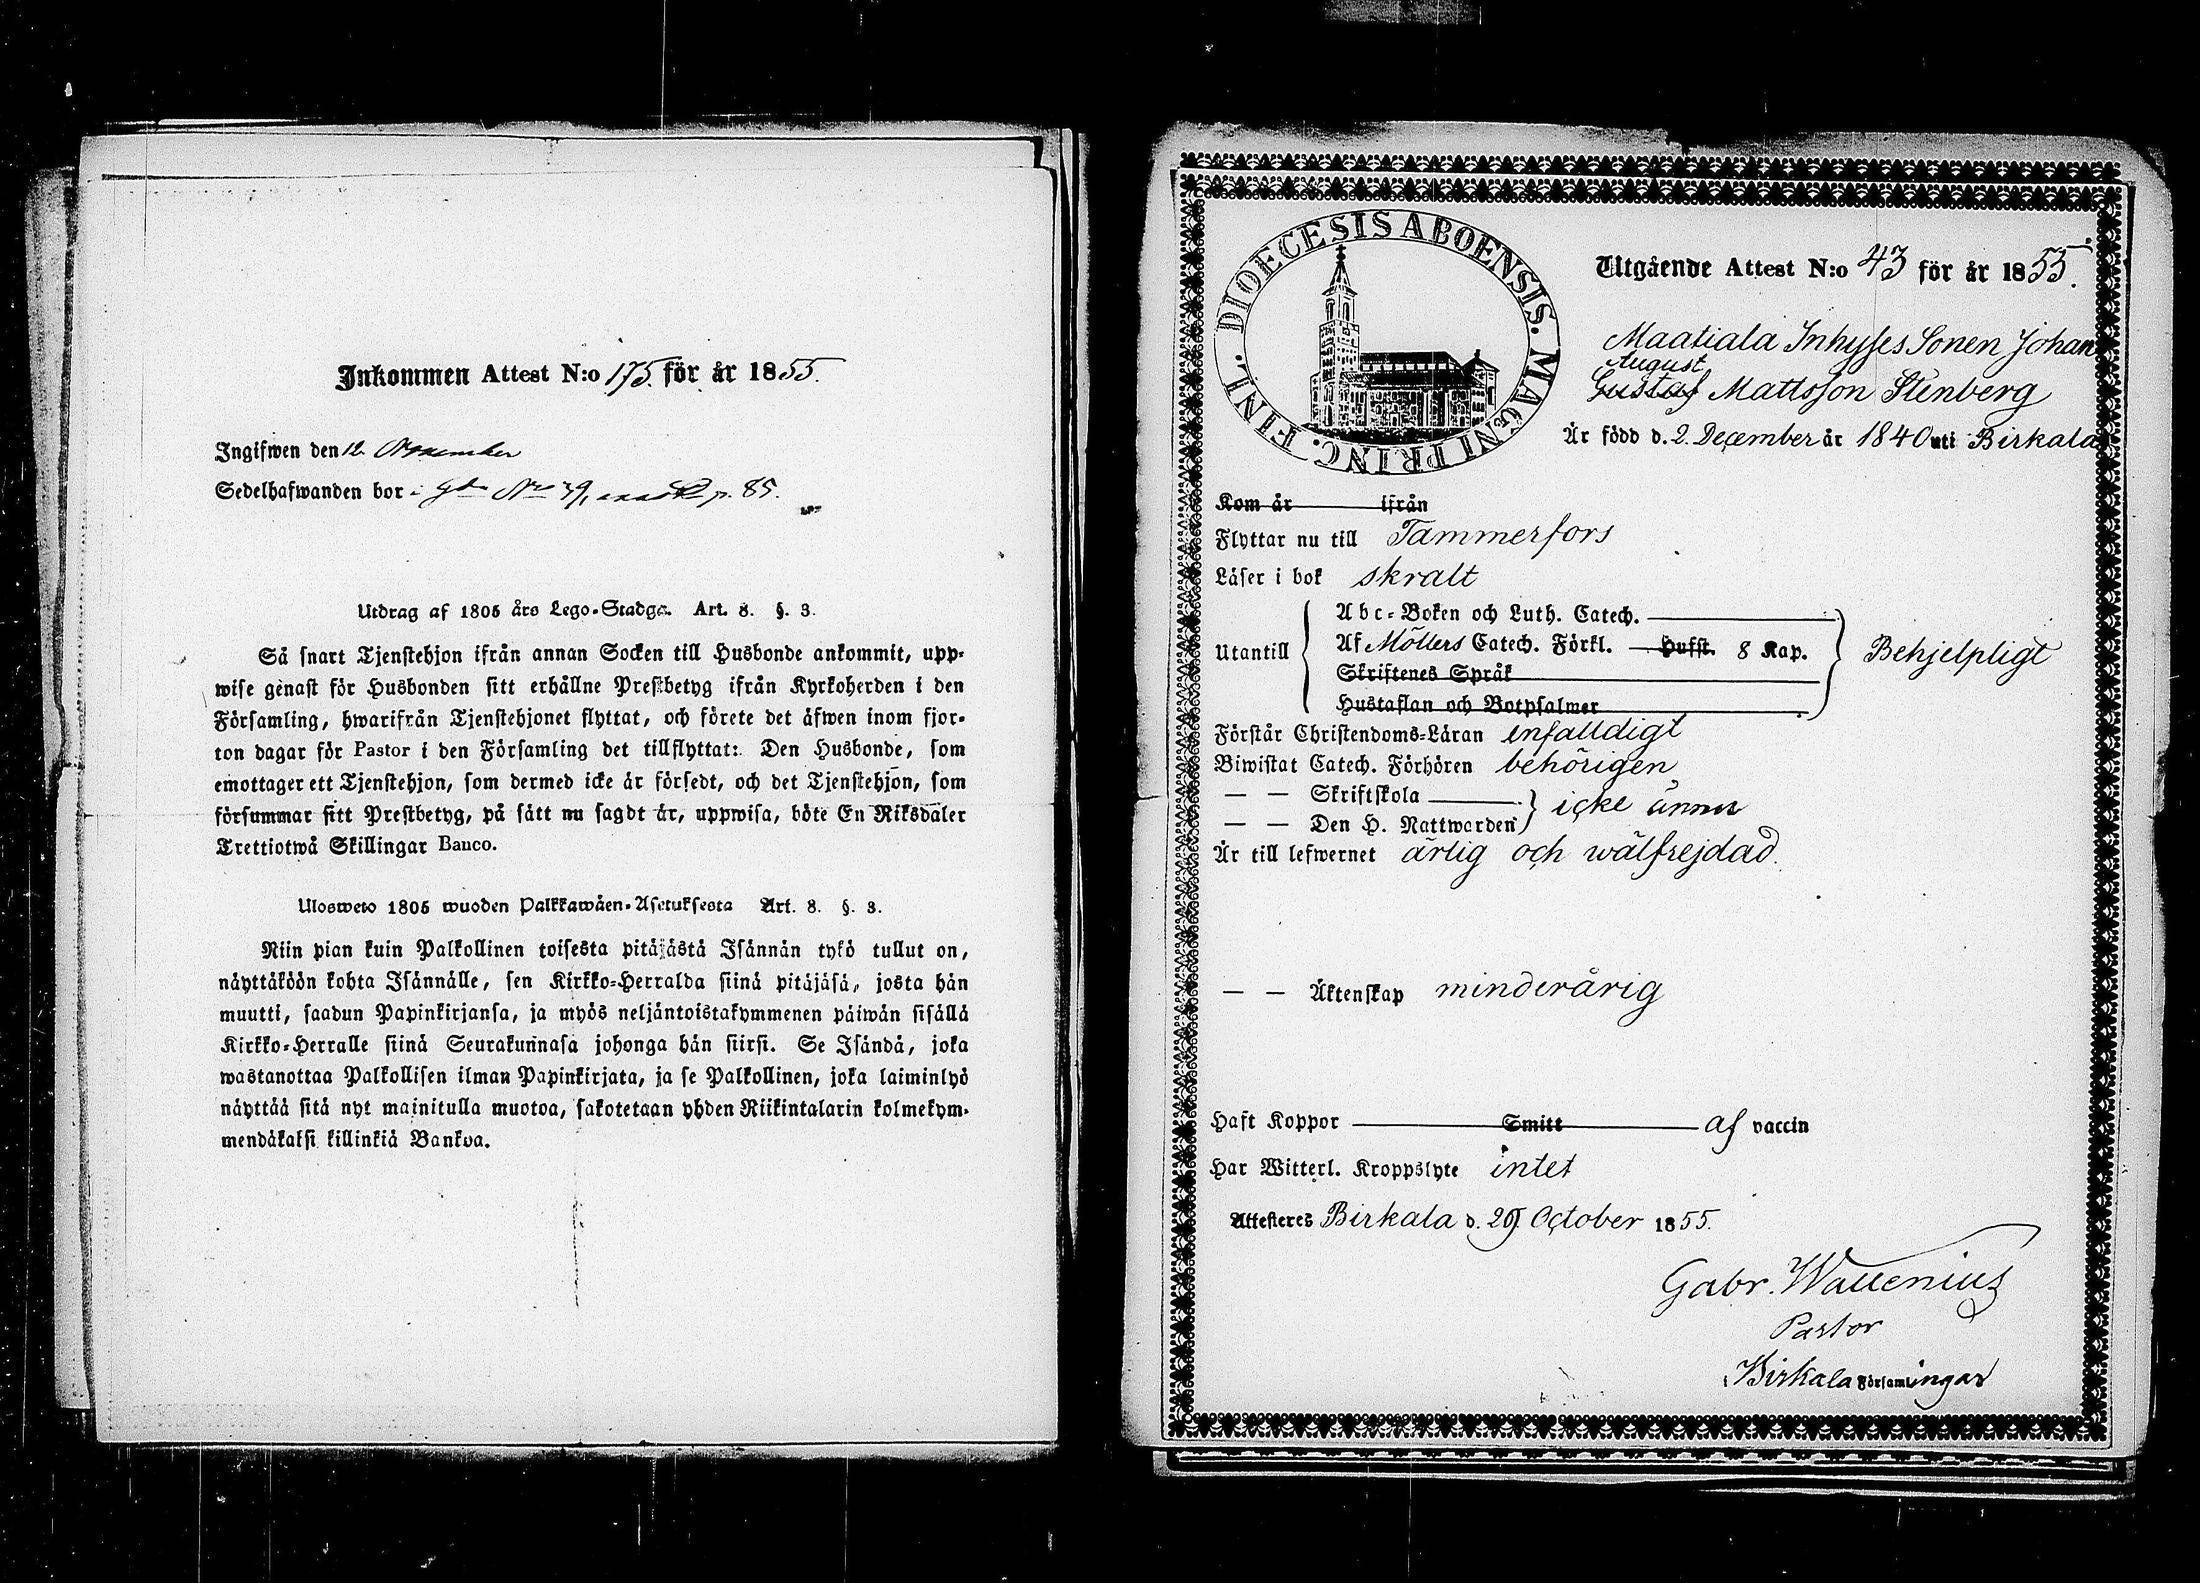 Inkommen Attest N:o 175. för år 1855.
Ingifwen den 12. November
Sedelhafwanden bor i gd No 39, p. 85.
Utdrag af 1805 års Lego-Stadga. Art. 8. §. 3.
Så snart Tjenstehjon ifrån annan Socken till Husbonde ankommit, upp-
wise genast för Husbonden sitt erhållne Prestbetyg ifrån Kyrkoherden i den
Församling, hwarifrån Tjenstehjonet flyttat, och förete det äfwen inom fjor-
ton dagar för Pastor i den Församling det tillflyttat: Den Husbonde, som
emottager ett Tjenstehjon, som dermed icke är försedt, och det Tjenstehjon, som
försummar sitt Prestbetyg, på sätt nu sagdt är, uppwisa, böte En Riksdaler
Trettiotwå Skillingar Banco.
Ulosweto 1805 wuoden Palkkawäen-Asetuksesta Art. 8. §. 3.
Niin pian kuin Palkollinen toisesta pitäjästä Isännän tykö tullut on,
näyttäköön kohta Isännälle, sen Kirkko-Herralda siinä pitäjäsä, josta hän
muutti, saadun Papinkirjansa, ja myös neljäntoistakymmenen päiwän sisällä
Kirkko-Herralle siinä Seurakunnasa johonga hän siirsi. Se Isändä, joka
wastanottaa Palkollisen ilman Papinkirjata, ja se Palkollinen, joka laiminlyö
näyttää sitä nyt mainitulla muotoa, sakotetaan yhden Riikintalarin kolmekym-
mendäkaksi killinkiä Bankoa.
DIOECESIS ABOENSIS. MAGNI PRINC. FINL.
Utgående Attest N:o 43 för år 1855.
Maatiala Inhyses Sonen Johan
August
Gustaf Mattsson Stenberg
Är född d. 2. December år 1840 uti Birkala
Kom år ifrån
Flyttar nu till Tammerfors
Läser i bok skralt
Utantill
Abc-Boken och Luth. Catech.
Af Möllers Catech. Förkl. Hufst. 8 Kap.
Skriftenes Språk
Hustaflan och Botpsalmer
Behjelpligt
Förstår Christendoms-Läran enfalldigt
Biwistat Catech. Förhören behörigen
— — Skriftskola
— — Den H. Nattwarden
icke ännu
Är till lefwernet ärlig och wälfrejdad.
— — Äktenskap minderårig
Haft Koppor Smitt af vaccin
Har Witterl. Kroppslyte intet
Attesteres Birkala d. 29 October 1855.
Gabr. Wallenius
Pastor
Birkala Församlingar